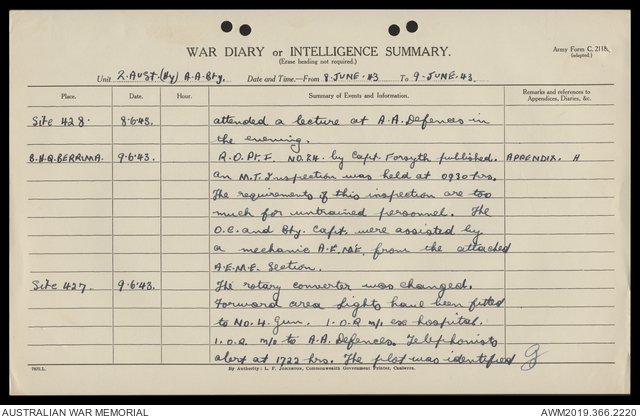 WAR DIARY or INTELLIGENCE SUMMARY.
(Erase heading not required.)
Army Form C. 2118.
(adapted.)
Unit 2. AUST. (Hy) A.A. Bty. Date and Time—From 8-JUNE-43 To 9-JUNE-43.
Place. Date. Hour. Summary of Events and Information. Remarks and references to Appendices, Diaries, &c.
Site 428. 8.6.43. attended a lecture at A.A. Defences in
the evening.
B.H.Q. BERRIMA. 9.6.43. R.O. Pt. I. No. 24. by Capt. Forsyth published. APPENDIX. H
an M.T. Inspection was held at 0930 hrs.
The requirements of this inspection are too
much for untrained personnel. The
O.C. and Bty. Capt. were assisted by
a mechanic A.E.M.E. from the attached
A.E.M.E. Section.
Site 427. 9.6.43. The rotary converter was changed.
Forward area lights have been fitted
to No. 4. Gun. 1. O.R. m/i ex hospital.
1. O.R. m/o to A.A. Defences. Telephonists
alert at 1722 hrs. The plot was identified
By Authority: L. F. Johnston, Commonwealth Government Printer, Canberra.
AUSTRALIAN WAR MEMORIAL AWM2019.366.2220